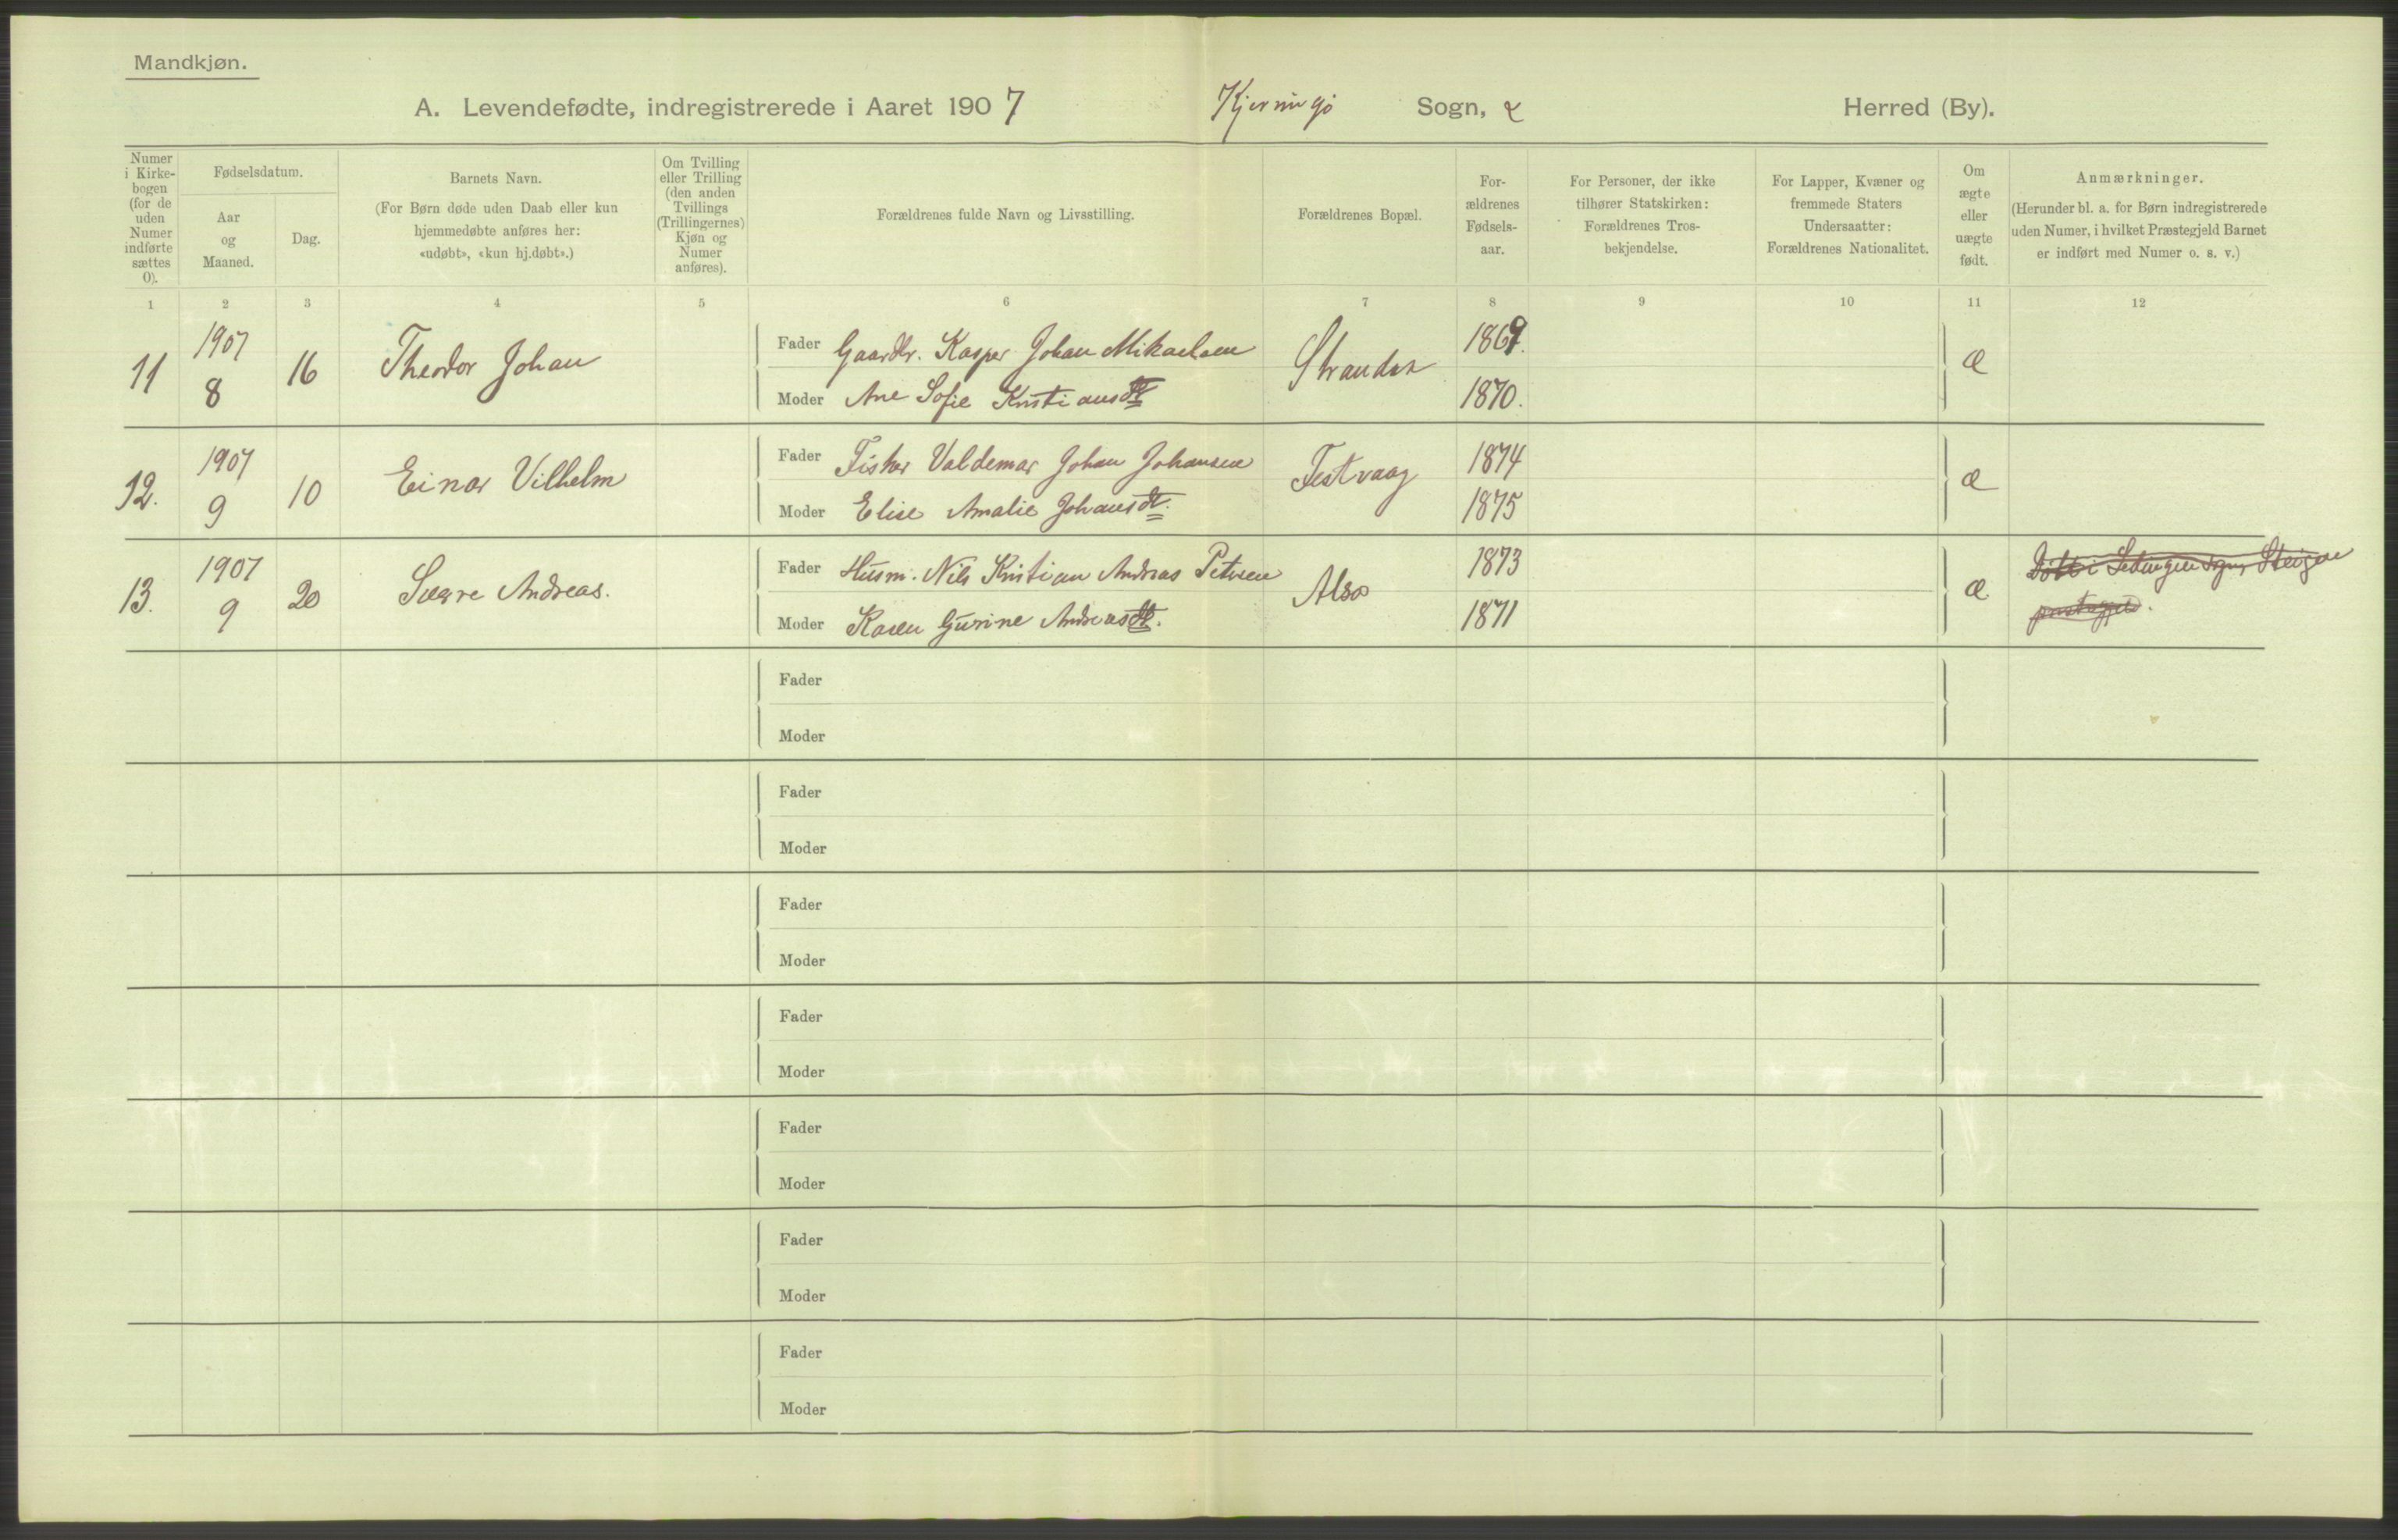 Mandkjøn.
A. Levendefødte, indregistrerede i Aaret 1907 Kjerringø Sogn, Herred (By).
Numer i Kirke-bogen (for de uden Numer indførte sættes 0).
Fødselsdatum.
Aar og Maaned.
Dag.
Barnets Navn.
(For Børn døde uden Daab eller kun
hjemmedøbte anføres her:
«udøbt», «kun hj.døbt».)
Om Tvilling
eller Trilling
(den anden
Tvillings
(Trillingernes)
Kjøn og
Numer
anføres).
Forældrenes fulde Navn og Livsstilling.
Forældrenes Bopæl.
For-
ældrenes
Fødsels-
aar.
For Personer, der ikke
tilhører Statskirken:
Forældrenes Tros-
bekjendelse.
For Lapper, Kvæner og
fremmede Staters
Undersaatter:
Forældrenes Nationalitet.
Om
ægte
eller
uægte
født.
Anmærkninger.
(Herunder bl. a. for Børn indregistrerede
uden Numer, i hvilket Præstegjeld Barnet
er indført med Numer o. s. v.)
1 2 3 4 5 6 7 8 9 10 11 12
11 1907 8 16 Theodor Johan
Fader Gaardbr. Kasper Johan Mikaelsen 1869.
Moder Ane Sofie Kristiansdt. 1870.
Strander æ
12. 1907 9 10 Einar Vilhelm
Fader Fisker Valdemar Johan Johansen 1874
Moder Elise Amalie Johansdt. 1875
Festvaag æ
13. 1907 9 20 Sverre Andreas.
Fader Husm. Nils Kristian Andreas Petersen 1873
Moder Karen Gurine Andreasdt. 1871
Alsos æ
Døbt i Ledingen sogn, Steigen
præstegjeld.
Fader
Moder
Fader
Moder
Fader
Moder
Fader
Moder
Fader
Moder
Fader
Moder
Fader
Moder